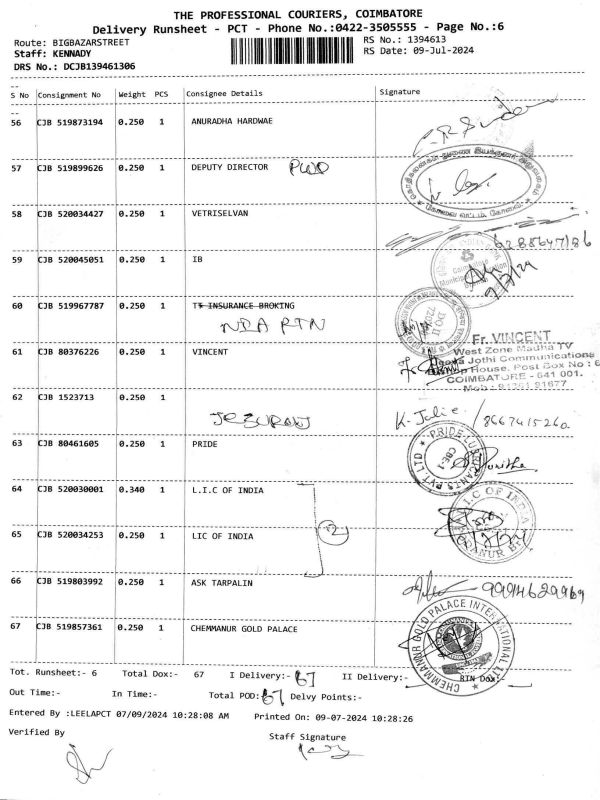 THE PROFESSIONAL COURIERS, COIMBATORE
Delivery Runsheet - PCT - Phone No.:0422-3505555 - Page No.:6
Route: BIGBAZARSTREET RS No.: 1394613
Staff: KENNADY RS Date: 09-Jul-2024
DRS No.: DCJB139461306
S No Consignment No Weight PCS Consignee Details Signature
56 CJB 519873194 0.250 1 ANURADHA HARDWAE
57 CJB 519899626 0.250 1 DEPUTY DIRECTOR PWD
58 CJB 520034427 0.250 1 VETRISELVAN
59 CJB 520045051 0.250 1 IB
60 CJB 519967787 0.250 1 INSURANCE BROKING
61 CJB 80376226 0.250 1 VINCENT
Fr. VINCENT
West Zone Madha TV
Jothi Communications
House, Post Box No : 6
COIMBATORE - 641 001.
62 CJB 1523713 0.250 1
63 CJB 80461605 0.250 1 PRIDE
64 CJB 520030001 0.340 1 L.I.C OF INDIA
L.I.C OF INDIA
65 CJB 520034253 0.250 1 LIC OF INDIA
66 CJB 519803992 0.250 1 ASK TARPALIN 9994629969
67 CJB 519857361 0.250 1 CHEMMANUR GOLD PALACE
CHEMMANUR GOLD PALACE INTERNATIONAL
Tot. Runsheet:- 6 Total Dox:- 67 I Delivery:- 67 II Delivery:- RTN Dox:-
Out Time:- In Time:- Total POD: 67 Delvy Points:-
Entered By :LEELAPCT 07/09/2024 10:28:08 AM Printed On: 09-07-2024 10:28:26
Verified By Staff Signature